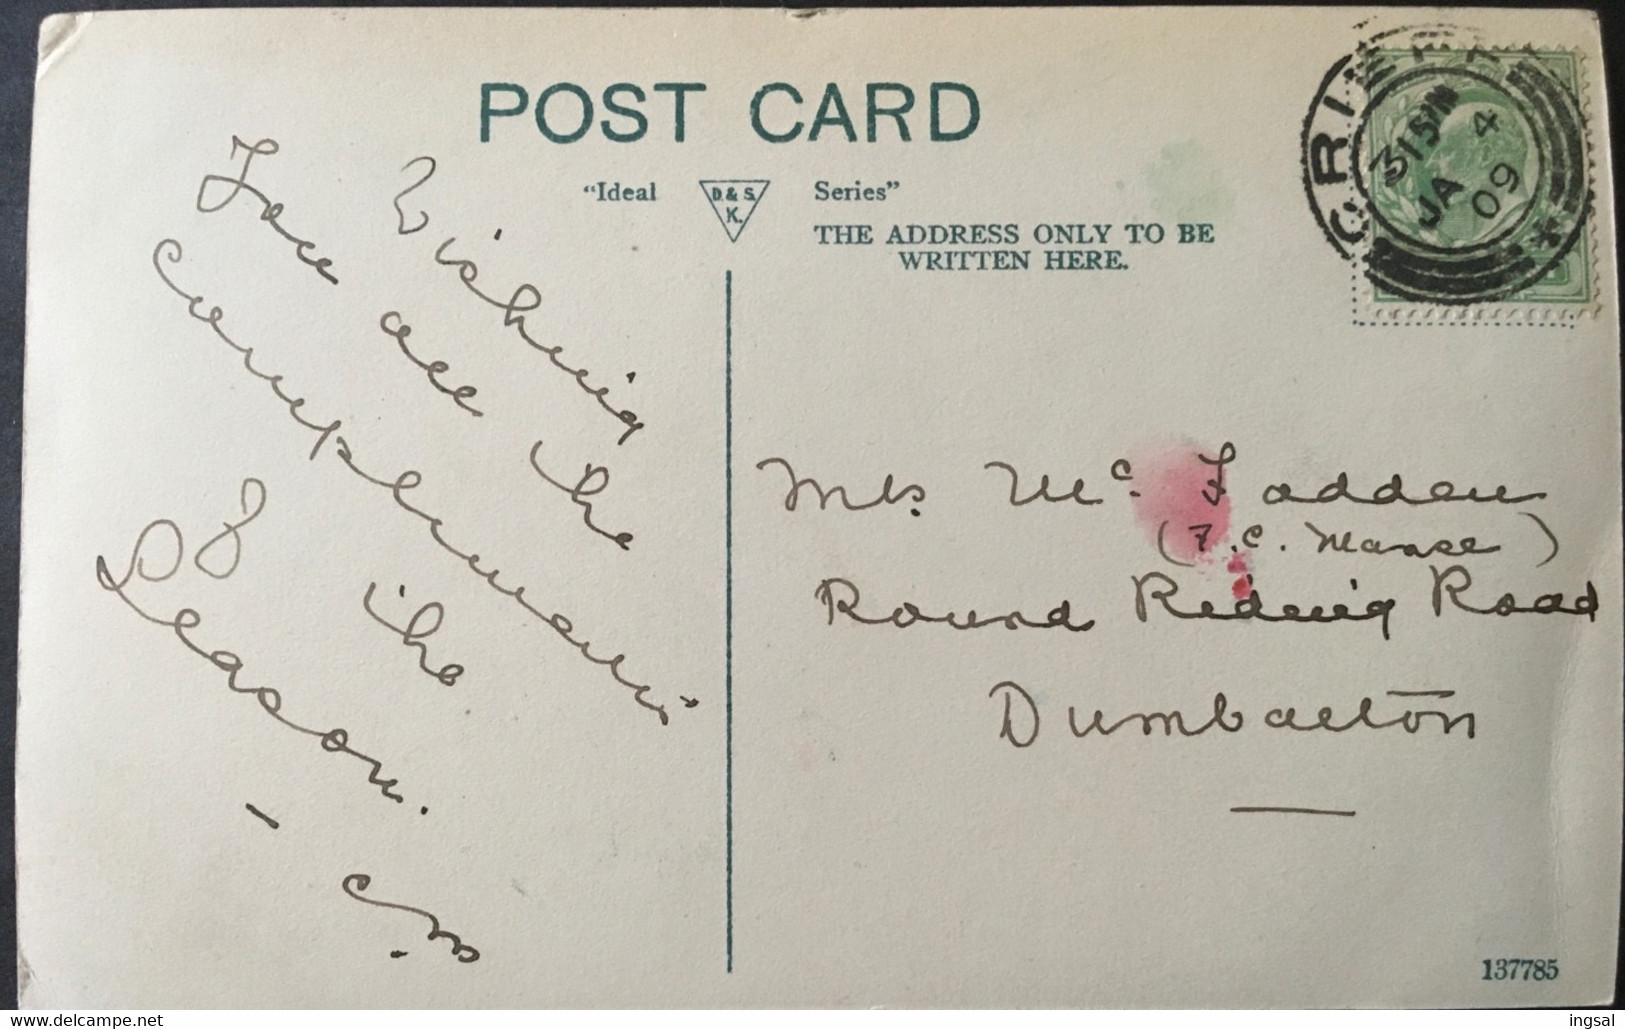 POST CARD
"Ideal D.& S. K. Series"
THE ADDRESS ONLY TO BE
WRITTEN HERE.
CRIEFF
3 15 PM
JA 4
09
Wishing
You all the
compliments
of the
Season.
Mrs. Mc. Fadden
(F.C. Manse)
Round Riding Road
Dumbarton
137785
delcampe.net
ingsal